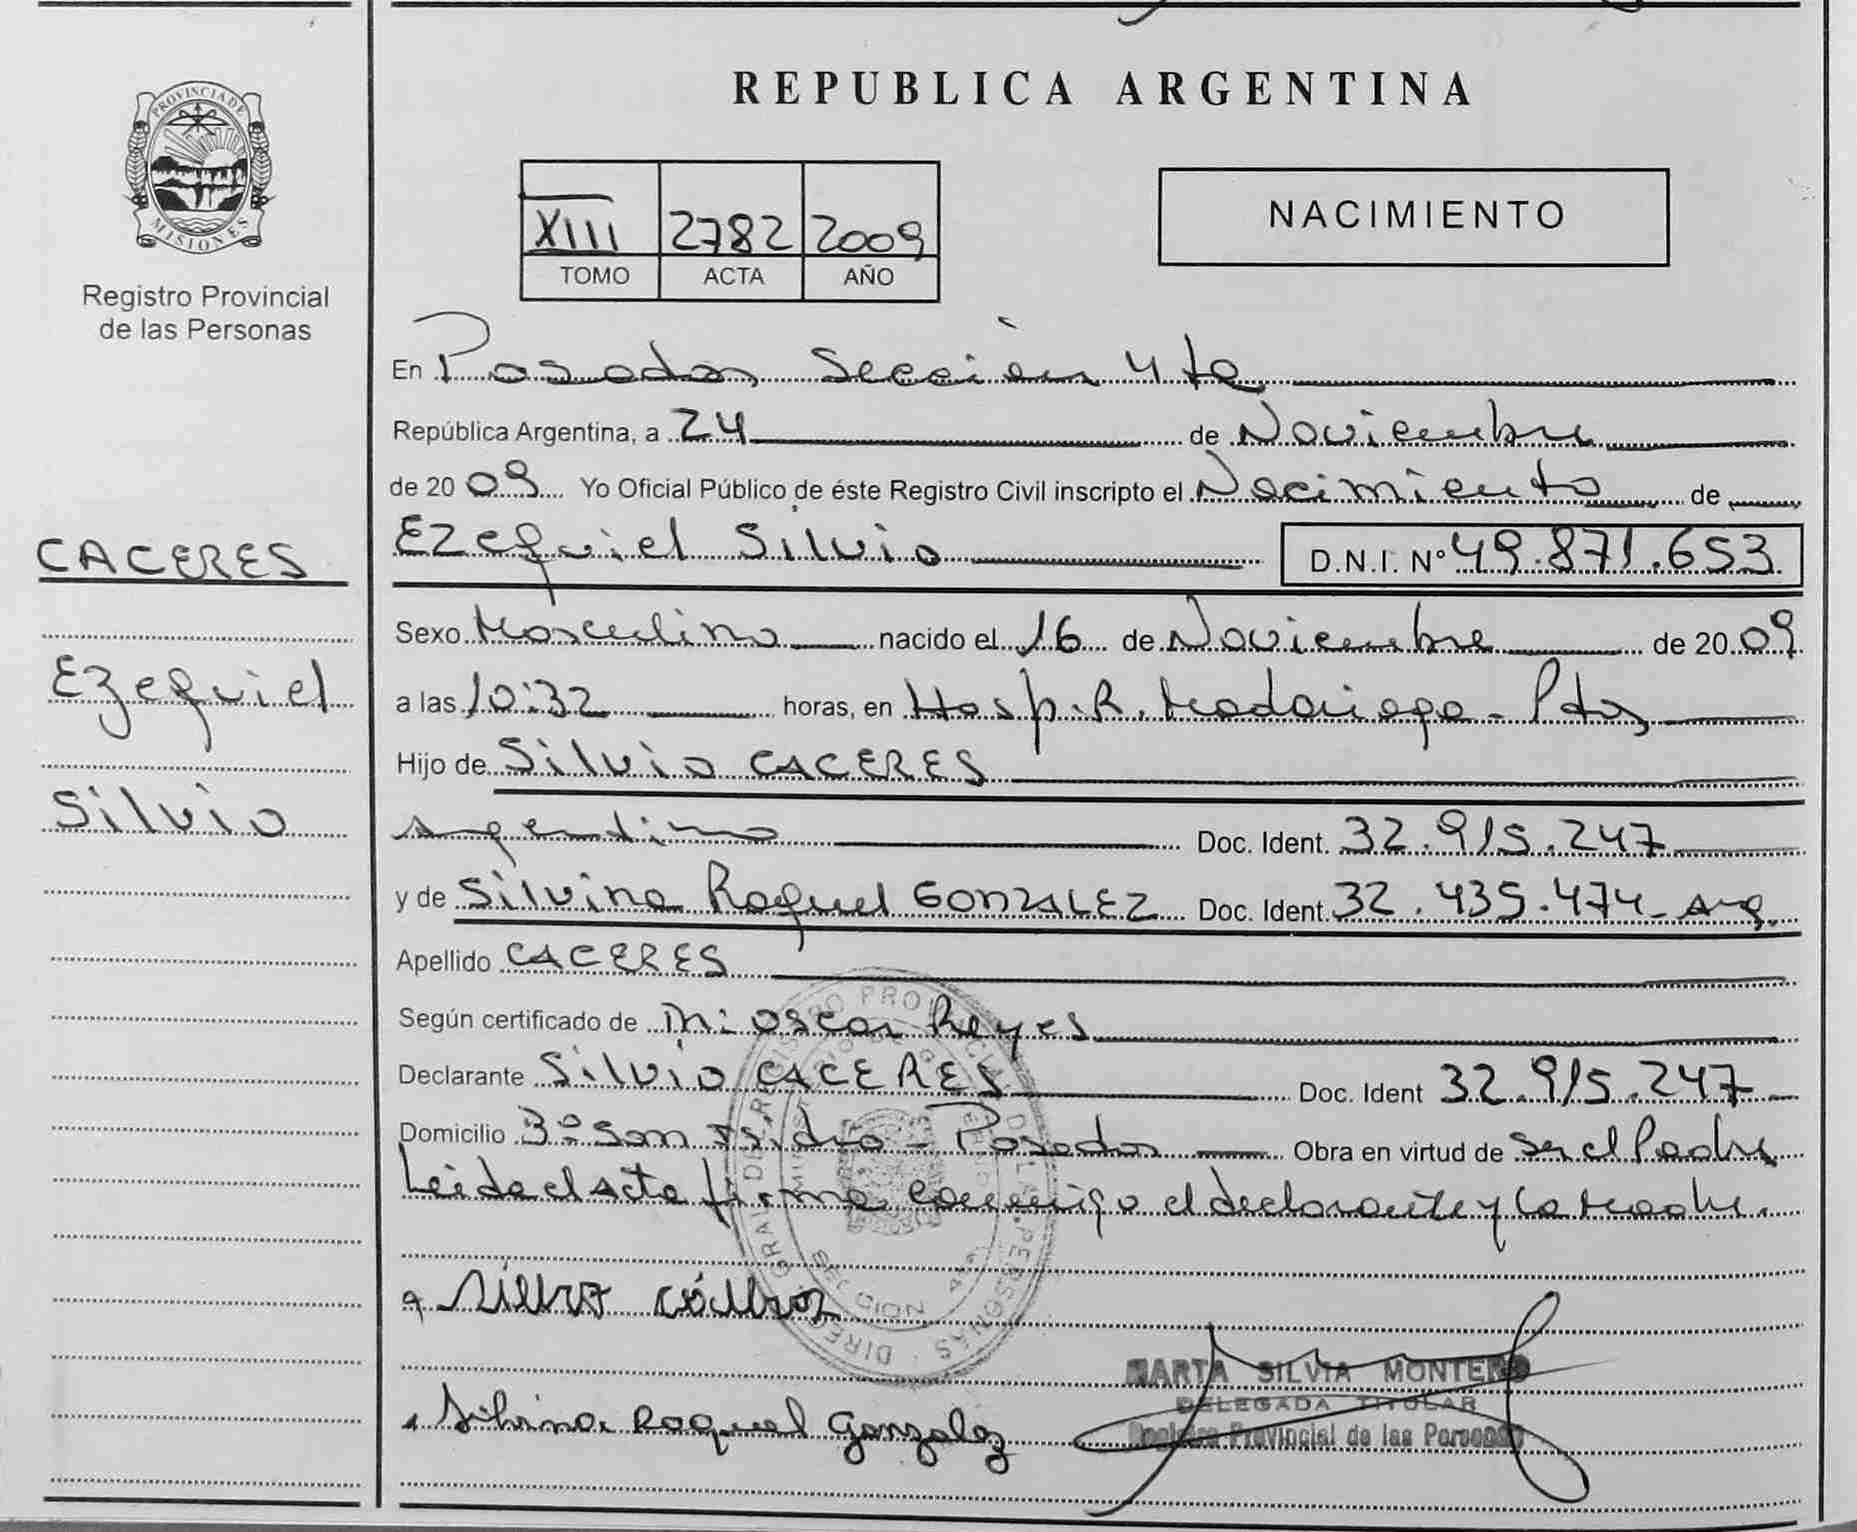 REPUBLICA ARGENTINA
PROVINCIA DE MISIONES
Registro Provincial
de las Personas
XIII 2782 2009
TOMO ACTA AÑO
NACIMIENTO
En Posadas Sección 4ta
República Argentina, a 24 de Noviembre
de 2009 Yo Oficial Público de éste Registro Civil inscripto el Nacimiento de
CACERES
Ezequiel Silvio D.N.I. Nº 49.871.653
Sexo Masculino nacido el 16 de Noviembre de 2009
Ezequiel
a las 10:32 horas, en Hosp. R. Madariaga - Pdas
Hijo de Silvio CACERES
Silvio
argentino Doc. Ident. 32.915.247
y de Silvina Raquel GONZALEZ Doc. Ident. 32.435.474 - arg.
Apellido CACERES
Según certificado de Oscar Reyes
Declarante Silvio CACERES Doc. Ident 32.915.247
Domicilio Bº San Isidro - Posadas Obra en virtud de Ser el Padre
Leida el acta firma conmigo el declarante y la Madre.
Silvina Raquel Gonzalez
MARTA SILVIA MONTERO
DELEGADA TITULAR
Registro Provincial de las Personas